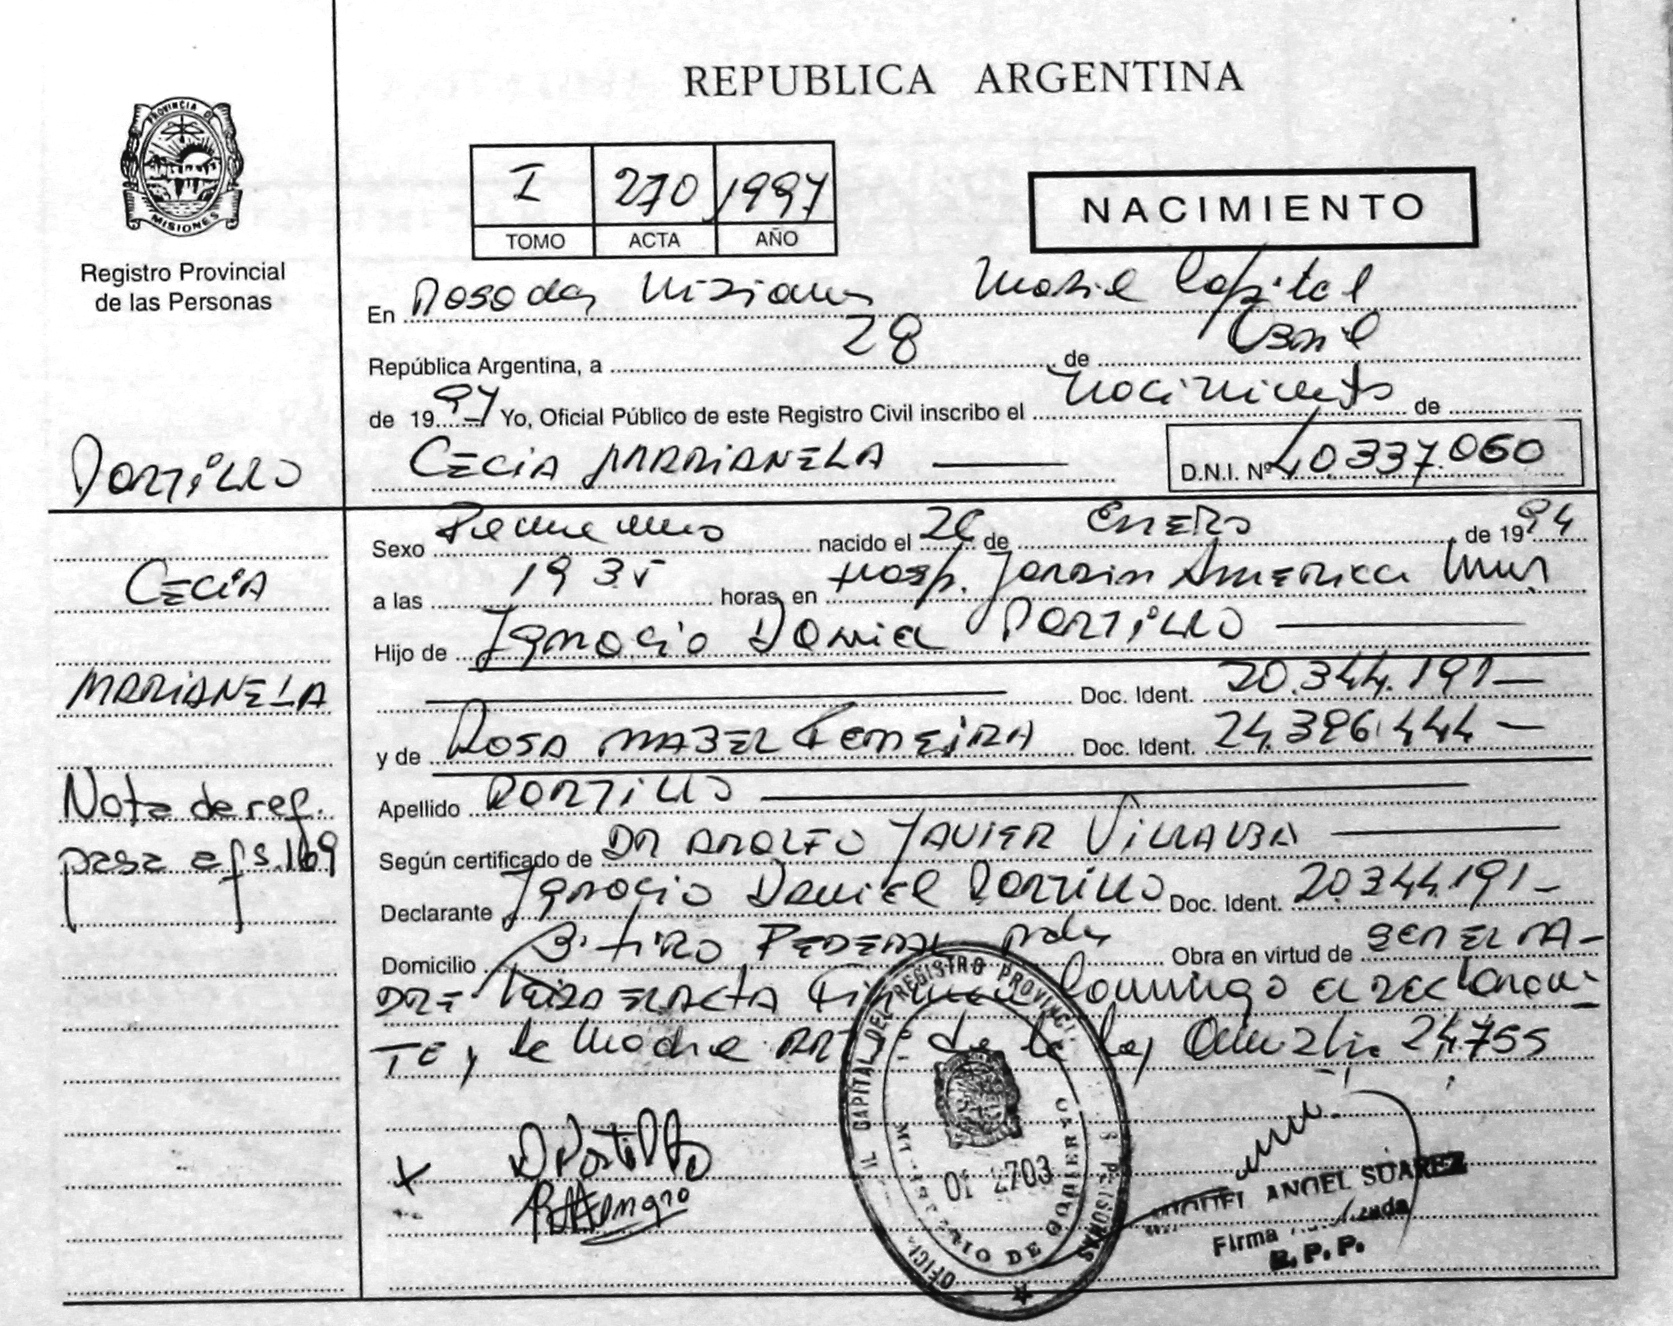 REPUBLICA ARGENTINA
PROVINCIA D
MISIONES
Registro Provincial
de las Personas
I 270 1997
TOMO ACTA AÑO
NACIMIENTO
En Posadas Misiones Capital
República Argentina, a 28 de Abril
de 1997 Yo, Oficial Público de este Registro Civil inscribo el Nacimiento de
CECIA MARIANELA D.N.I. Nº 40.337.060
PORTILLO
CECIA
MARIANELA
Nota de ref.
pasa a fs. 169
Sexo Femenino nacido el de ENERO de 19
a las 19 35 horas, en Hosp. Jardin America
Hijo de Ignacio Daniel PORTILLO
Doc. Ident. 20.344.191
y de ROSA MABEL FERREIRA Doc. Ident. 24.396.444
Apellido PORTILLO
Según certificado de DR ADOLFO JAVIER VILLALBA
Declarante Ignacio Daniel Portillo Doc. Ident. 20.344.191
Domicilio Bº TIRO FEDERAL Obra en virtud de SER EL PA-
DRE Leida EL ACTA Firman Conmigo el declaran-
TE y la Madre ART de la Ley 24.755
D Portillo
OFICI CAPITAL DEL REGISTRO PROVINCI PERSONAS
01
MIGUEL ANGEL SUAREZ
Firma
R.P.P.